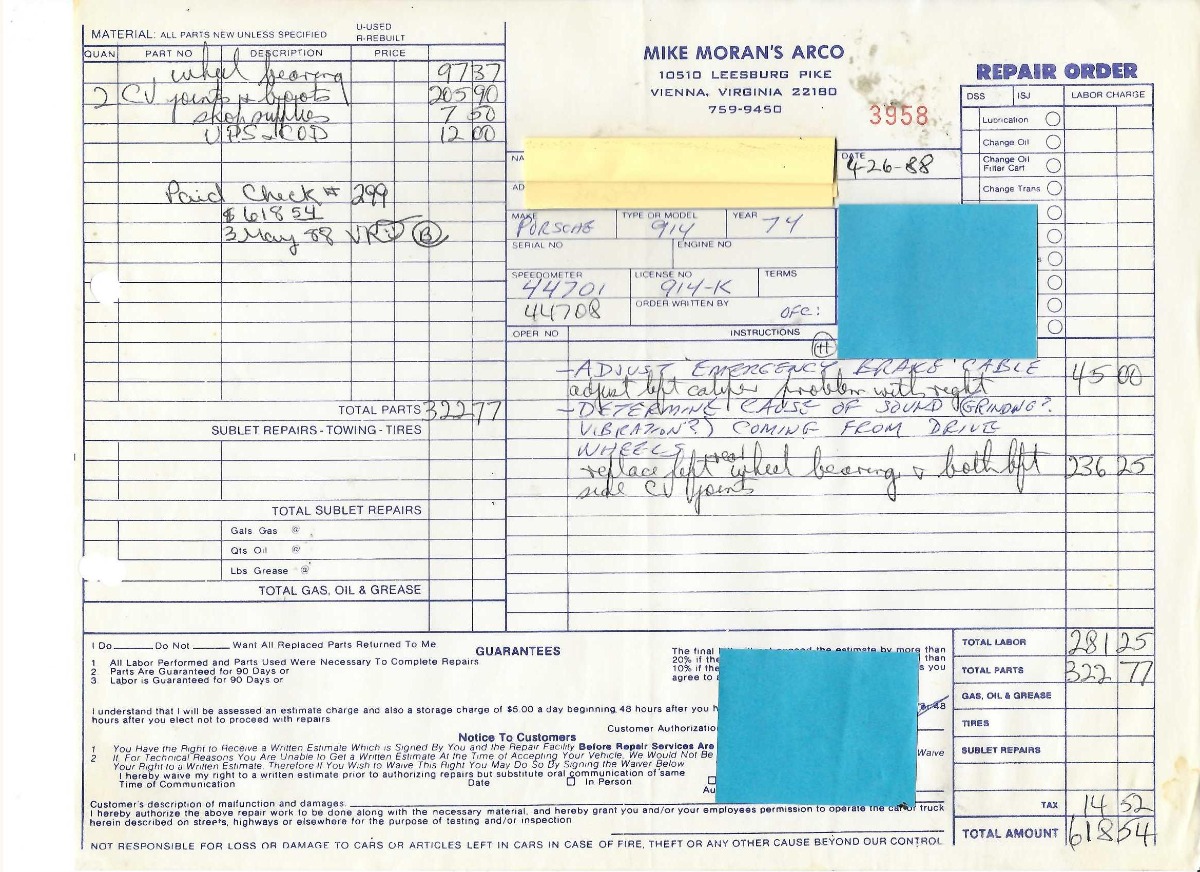 MATERIAL: ALL PARTS NEW UNLESS SPECIFIED
U-USED
R-REBUILT
QUAN PART NO DESCRIPTION PRICE
wheel bearing 97 37
2 CV joints & boots 205 90
shop supplies 7 50
UPS COD 12 00
Paid Check # 299
$ 618 54
3 May 88
B
TOTAL PARTS 322 77
SUBLET REPAIRS - TOWING - TIRES
TOTAL SUBLET REPAIRS
Gals Gas @
Qts Oil @
Lbs Grease @
TOTAL GAS, OIL & GREASE
MIKE MORAN'S ARCO
10510 LEESBURG PIKE
VIENNA, VIRGINIA 22180
759-9450
3958
REPAIR ORDER
DSS ISJ LABOR CHARGE
Lubrication
Change Oil
Change Oil
Filter Cart
Change Trans
NA
DATE
4-26-88
AD
MAKE PORSCHE TYPE OR MODEL 914 YEAR 74
SERIAL NO ENGINE NO
SPEEDOMETER 44701 LICENSE NO 914-K TERMS
44708 ORDER WRITTEN BY OFC:
OPER NO INSTRUCTIONS
- ADJUST EMERGENCY BRAKE CABLE 45 00
adjust left caliper problem with right
- DETERMINE CAUSE OF SOUND (GRINDING?
VIBRATION?) COMING FROM DRIVE
WHEELS
replace left rear wheel bearing & both left 236 25
side CV joints
I Do Do Not Want All Replaced Parts Returned To Me
GUARANTEES
1 All Labor Performed and Parts Used Were Necessary To Complete Repairs
2 Parts Are Guaranteed For 90 Days or
3 Labor is Guaranteed For 90 Days or
The final exceed the estimate by more
20% if the than
10% if the s you
agree to
I understand that I will be assessed an estimate charge and also a storage charge of $5.00 a day beginning 48 hours after you h or 48
hours after you elect not to proceed with repairs
Customer Authorization
Notice To Customers
1 You Have the Right to Receive a Written Estimate Which is Signed By You and the Repair Facility Before Repair Services Are
2 If For Technical Reasons You Are Unable to Get a Written Estimate At the Time of Accepting Your Vehicle, We Would Not Be Waive
Your Right to a Written Estimate. Therefore If You Wish to Waive This Right You May Do So By Signing the Waiver Below
I hereby waive my right to a written estimate prior to authorizing repairs but substitute oral communication of same
Time of Communication Date In Person
Au
Customer's description of malfunction and damages.
I hereby authorize the above repair work to be done along with the necessary material, and hereby grant you and/or your employees permission to operate the car or truck
herein described on streets, highways or elsewhere for the purpose of testing and/or inspection
NOT RESPONSIBLE FOR LOSS OR DAMAGE TO CARS OR ARTICLES LEFT IN CARS IN CASE OF FIRE, THEFT OR ANY OTHER CAUSE BEYOND OUR CONTROL
TOTAL LABOR 281 25
TOTAL PARTS 322 77
GAS, OIL & GREASE
TIRES
SUBLET REPAIRS
TAX 14 52
TOTAL AMOUNT 618 54